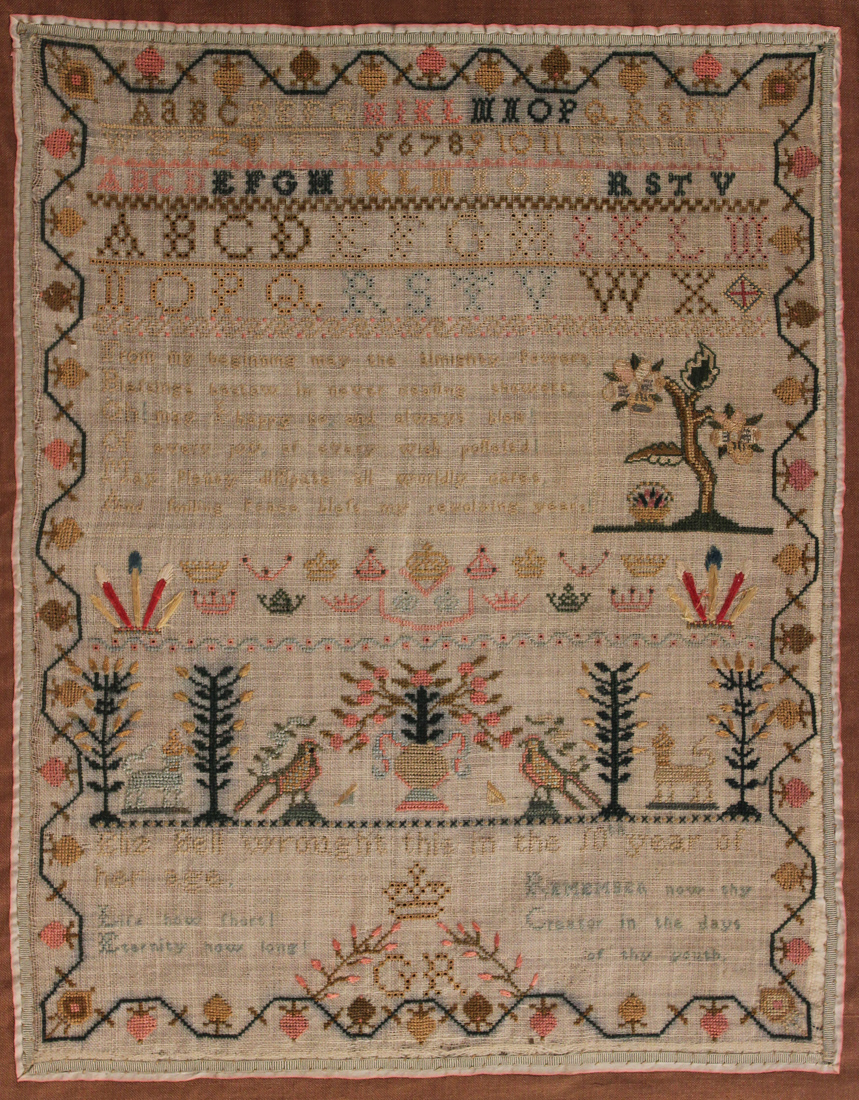 A a B C D E F G H I K L M N O P Q R S T V
5 6 7 8 9 10 11 12 13 14 15
A B C D E F G H I K L M N O P Q R S T V
A B C D E F G H I K L M
N O P Q R S T V W X
From my beginning may the Almighty Powers,
Bleſsings bestow in never ceasing showers,
Oh! may I happy be, and always bleſt
Of every joy, of every wish poſseſs'd!
May Plenty diſsipate all worldly cares,
And ſmiling Peace bleſs my revolving years!
Eliz Bell wrought this in the 10th year of
her age.
Life how ſhort!
Eternity how long!
REMEMBER now thy
Creator in the days
of thy youth.
G R.